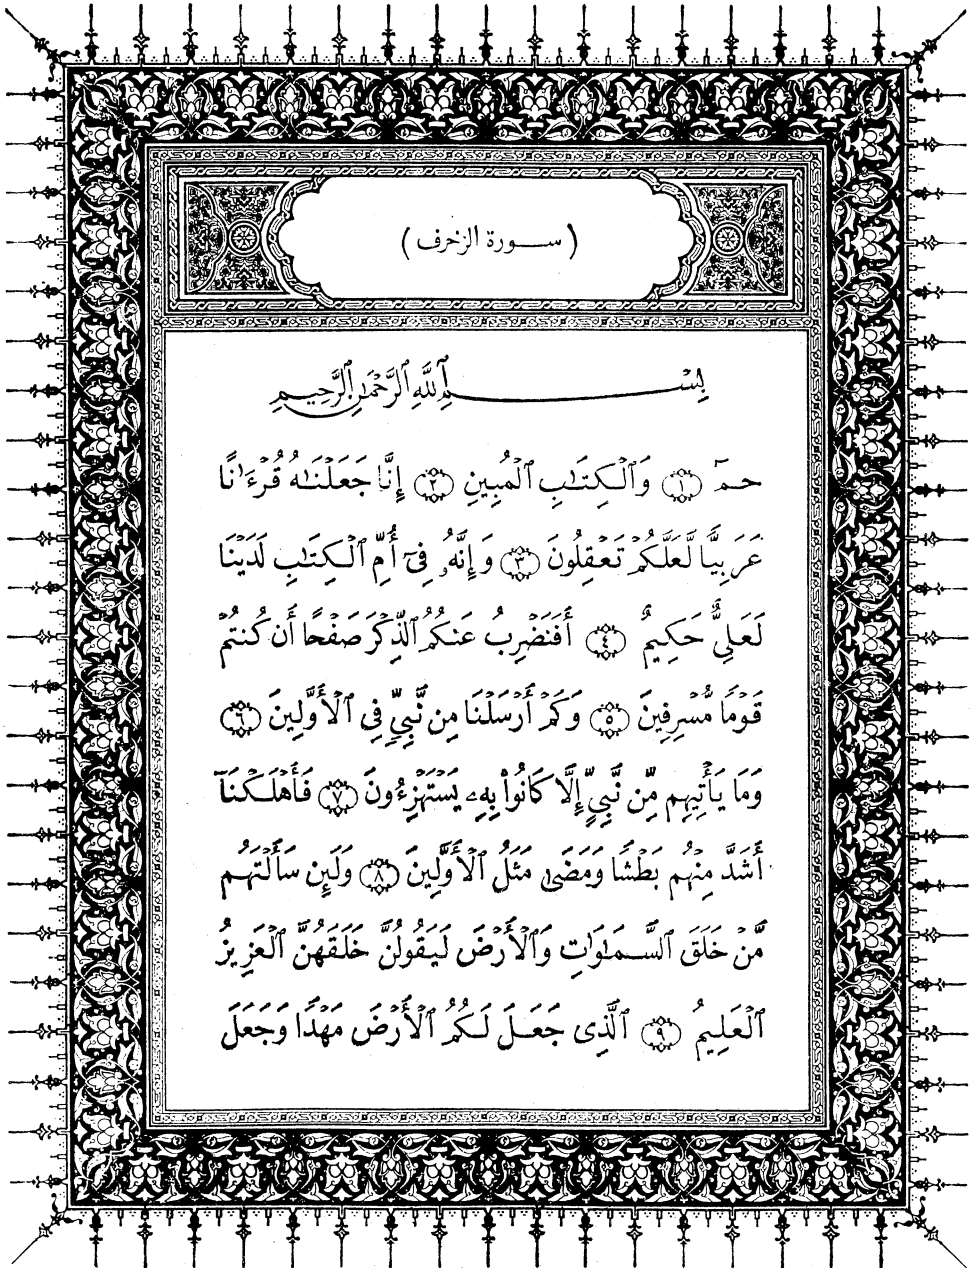 (سورة الزخرف)
بِسْمِ ٱللَّهِ ٱلرَّحْمَٰنِ ٱلرَّحِيمِ
حمٓ ١ وَٱلْكِتَٰبِ ٱلْمُبِينِ ٢ إِنَّا جَعَلْنَٰهُ قُرْءَٰنًا
عَرَبِيًّا لَّعَلَّكُمْ تَعْقِلُونَ ٣ وَإِنَّهُۥ فِىٓ أُمِّ ٱلْكِتَٰبِ لَدَيْنَا
لَعَلِىٌّ حَكِيمٌ ٤ أَفَنَضْرِبُ عَنكُمُ ٱلذِّكْرَ صَفْحًا أَن كُنتُمْ
قَوْمًا مُّسْرِفِينَ ٥ وَكَمْ أَرْسَلْنَا مِن نَّبِىٍّ فِى ٱلْأَوَّلِينَ ٦
وَمَا يَأْتِيهِم مِّن نَّبِىٍّ إِلَّا كَانُوا۟ بِهِۦ يَسْتَهْزِءُونَ ٧ فَأَهْلَكْنَآ
أَشَدَّ مِنْهُم بَطْشًا وَمَضَىٰ مَثَلُ ٱلْأَوَّلِينَ ٨ وَلَئِن سَأَلْتَهُم
مَّنْ خَلَقَ ٱلسَّمَٰوَٰتِ وَٱلْأَرْضَ لَيَقُولُنَّ خَلَقَهُنَّ ٱلْعَزِيزُ
ٱلْعَلِيمُ ٩ ٱلَّذِى جَعَلَ لَكُمُ ٱلْأَرْضَ مَهْدًا وَجَعَلَ